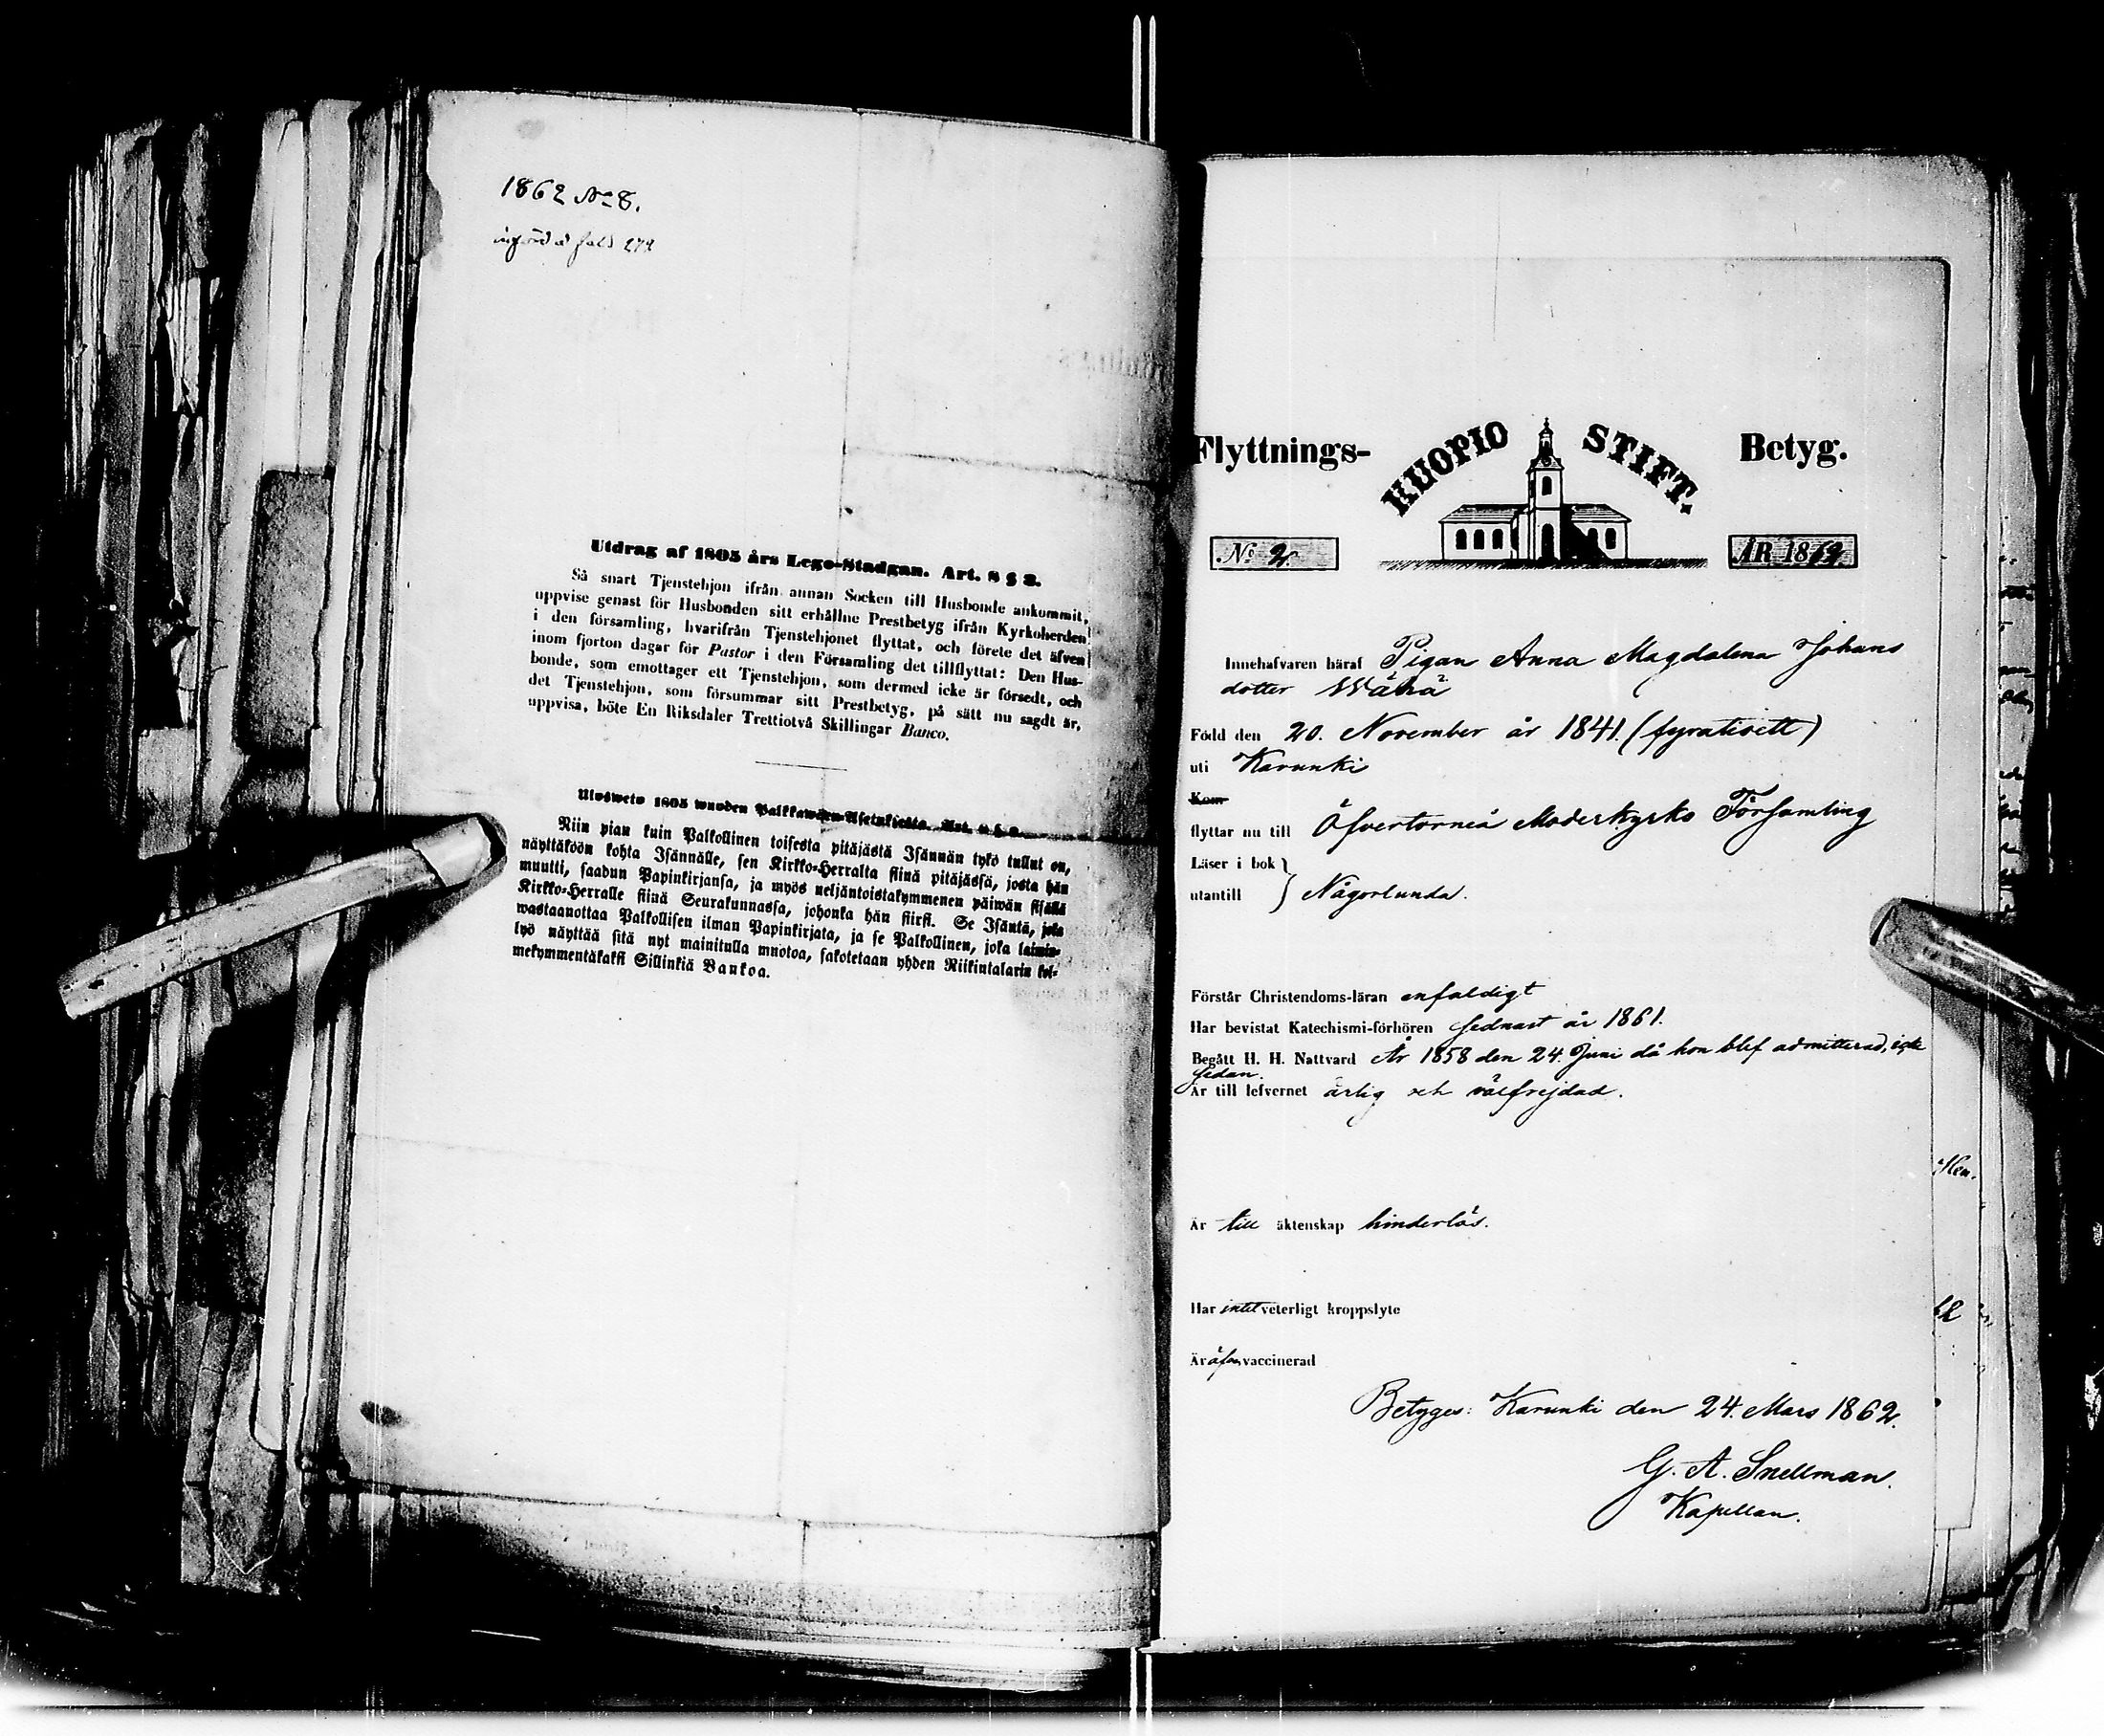 1862 No 8.
införd å fold 272
Utdrag af 1805 års Lego-Stadgan. Art. 8 § 3.
Så snart Tjenstehjon ifrån annan Socken till Husbonde ankommit,
uppvise genast för Husbonden sitt erhållne Prestbetyg ifrån Kyrkoherden
i den församling, hvarifrån Tjenstehjonet flyttat, och förete det äfven
inom fjorton dagar för Pastor i den Församling det tillflyttat: Den Hus-
bonde, som emottager ett Tjenstehjon, som dermed icke är försedt, och
det Tjenstehjon, som försummar sitt Prestbetyg, på sätt nu sagdt är,
uppvisa, böte En Riksdaler Trettiotvå Skillingar Banco.
Ulosweto 1805 wuoden Palkkawäen-Asetuksesta. Art.
Niin pian kuin Palkollinen toisesta pitäjästä Isännän tykö tullut on,
näyttäköön kohta Isännälle, sen Kirkko-Herralta siinä pitäjässä, josta hän
muutti, saadun Papinkirjansa, ja myös neljäntoistakymmenen päiwän sisällä
Kirkko-Herralle siinä Seurakunnassa, johonka hän siirsi. Se Isäntä, joka
wastaanottaa Palkollisen ilman Papinkirjata, ja se Palkollinen, joka laimin-
lyö näyttää sitä nyt mainitulla muotoa, sakotetaan yhden Riikintalarin kol-
mekymmentäkaksi Sillinkiä Bankoa.
Flyttnings- KUOPIO STIFT. Betyg.
No 2. ÅR 1862
Innehafvaren häraf Pigan Anna Magdalena Johans
dotter Wähä
Född den 20. November år 1841. (fyratiett)
uti Karunki
Kom
flyttar nu till Öfvertorneå Moderkyrko Församling
Läser i bok }
utantill } Någorlunda.
Förstår Christendoms-läran enfaldigt
Har bevistat Katechismi-förhören sednast år 1861.
Begått H. H. Nattvard År 1858 den 24. Juni då hon blef admitterad, icke
sedan.
Är till lefvernet ärlig och välfrejdad.
Är till äktenskap hinderlös.
Har intet veterligt kroppslyte
Är äfven vaccinerad
Betyges: Karunki den 24. Mars 1862.
G. A. Snellman.
Kapellan.